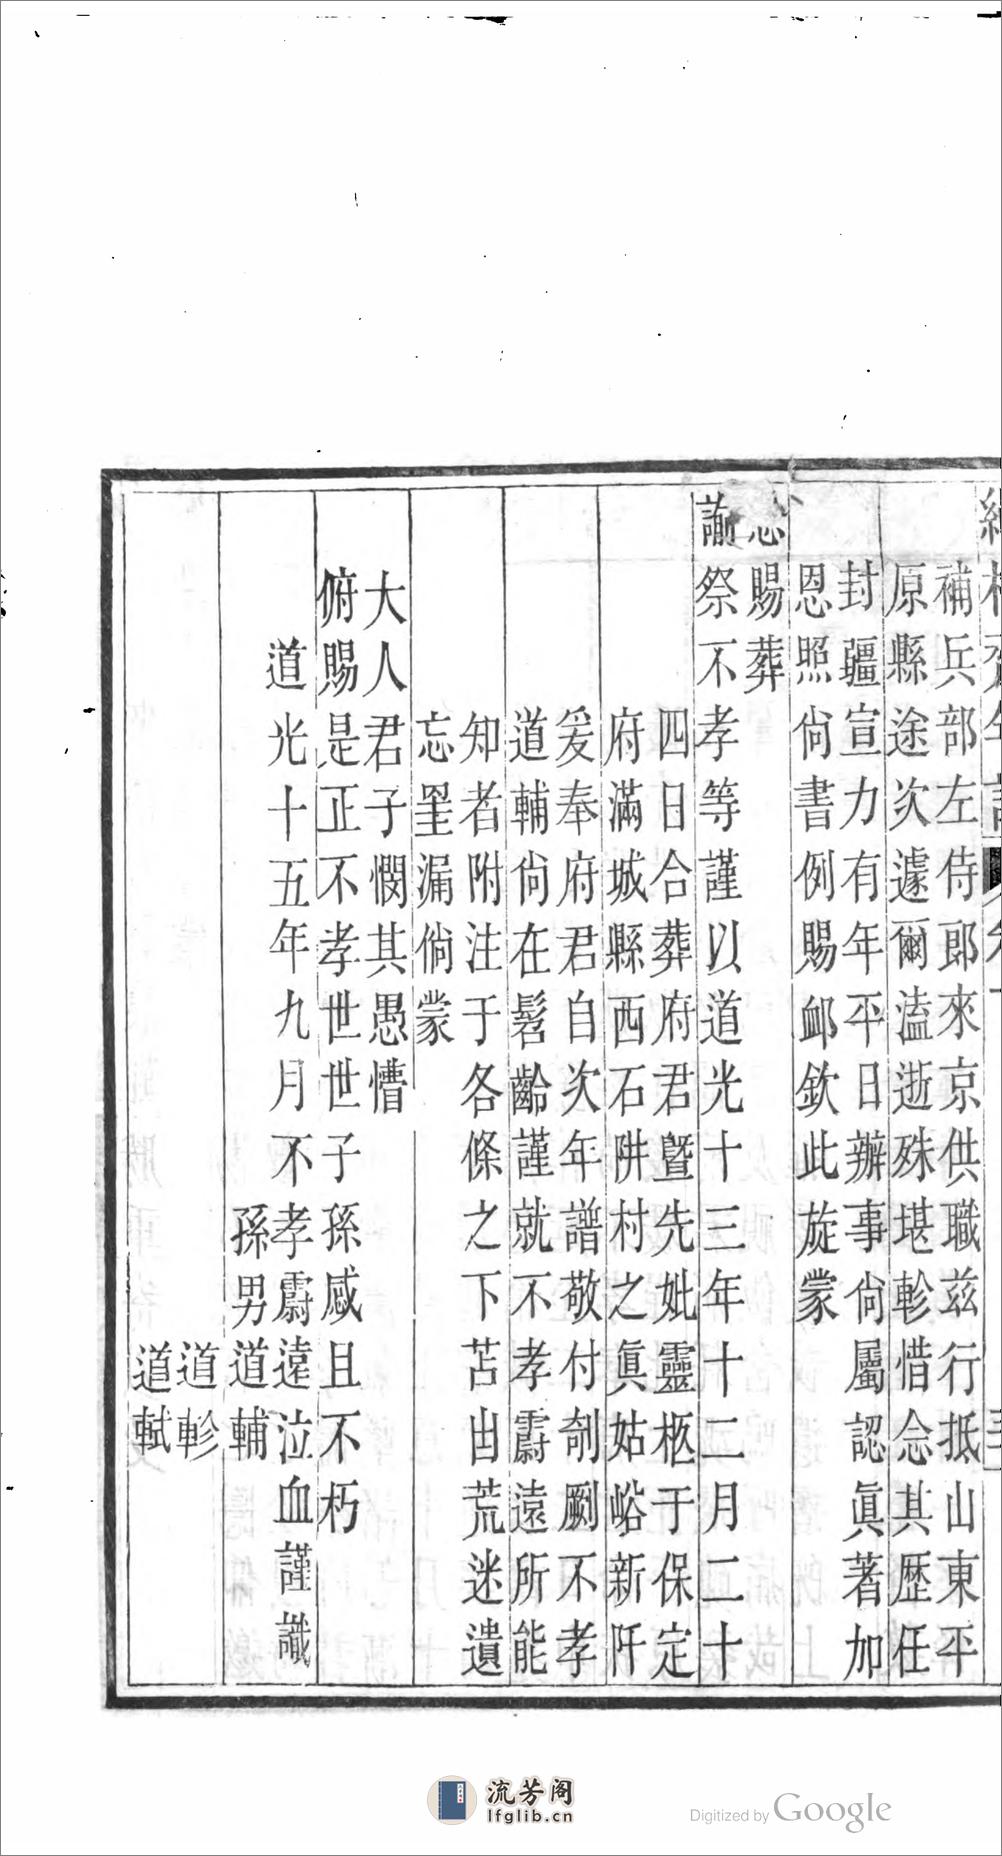 補兵部左侍郎來京供職茲行抵山東平
原縣途次遽爾溘逝殊堪軫惜念其歷任
封疆宣力有年平日辦事尚屬認眞著加
恩照尚書例賜䘏欽此旋蒙
賜葬
諭祭不孝等謹以道光十三年十二月二十
四日合葬府君暨先妣靈柩于保定
府滿城縣西石阱村之眞姑峪新阡
爰奉府君自次年譜敬付剞劂不孝
道輔尙在髫齡謹就不孝霨遠所能
知者附注于各條之下苫凷荒迷遺
忘罣漏倘蒙
大人君子憫其愚懵
俯賜是正不孝世世子孫感且不朽
道光十五年九月不孝霨遠泣血謹識
孫男道輔
道軫
道軾
流芳阁
lfglib.cn
Digitized by Google